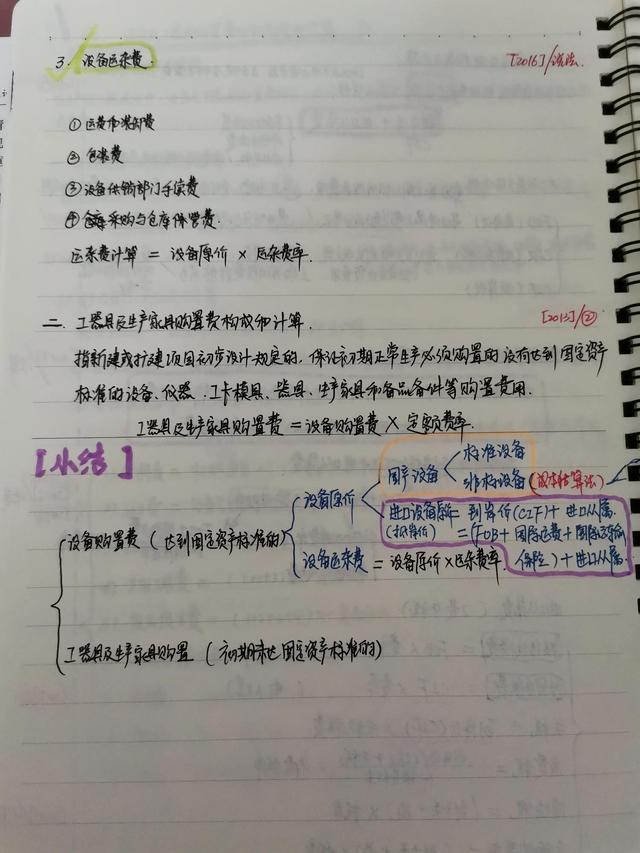 3. 设备运杂费. [2016]/
① 运费和装卸费
② 包装费
③ 设备供销部门手续费
④ 采购与仓库保管费.
运杂费计算 = 设备原价 × 运杂费率.
二. 工器具及生产家具购置费构成和计算. [2013]/②
指新建或扩建项目初步设计规定的, 保证初期正常生产必须购置的没有达到固定资产
标准的设备、仪器、工卡模具、器具、生产家具和备品备件等购置费用.
工器具及生产家具购置费 = 设备购置费 × 定额费率.
[小结]
设备购置费 (达到固定资产标准的)
设备原价
国产设备
标准设备
非标设备 (成本估算法)
进口设备原价 = 到岸价(CIF) + 进口从属.
(抵岸价) = (FOB + 国际运费 + 国际运输
保险) + 进口从属.
设备运杂费 = 设备原价 × 运杂费率.
工器具及生产家具购置 (初期未达固定资产标准的)